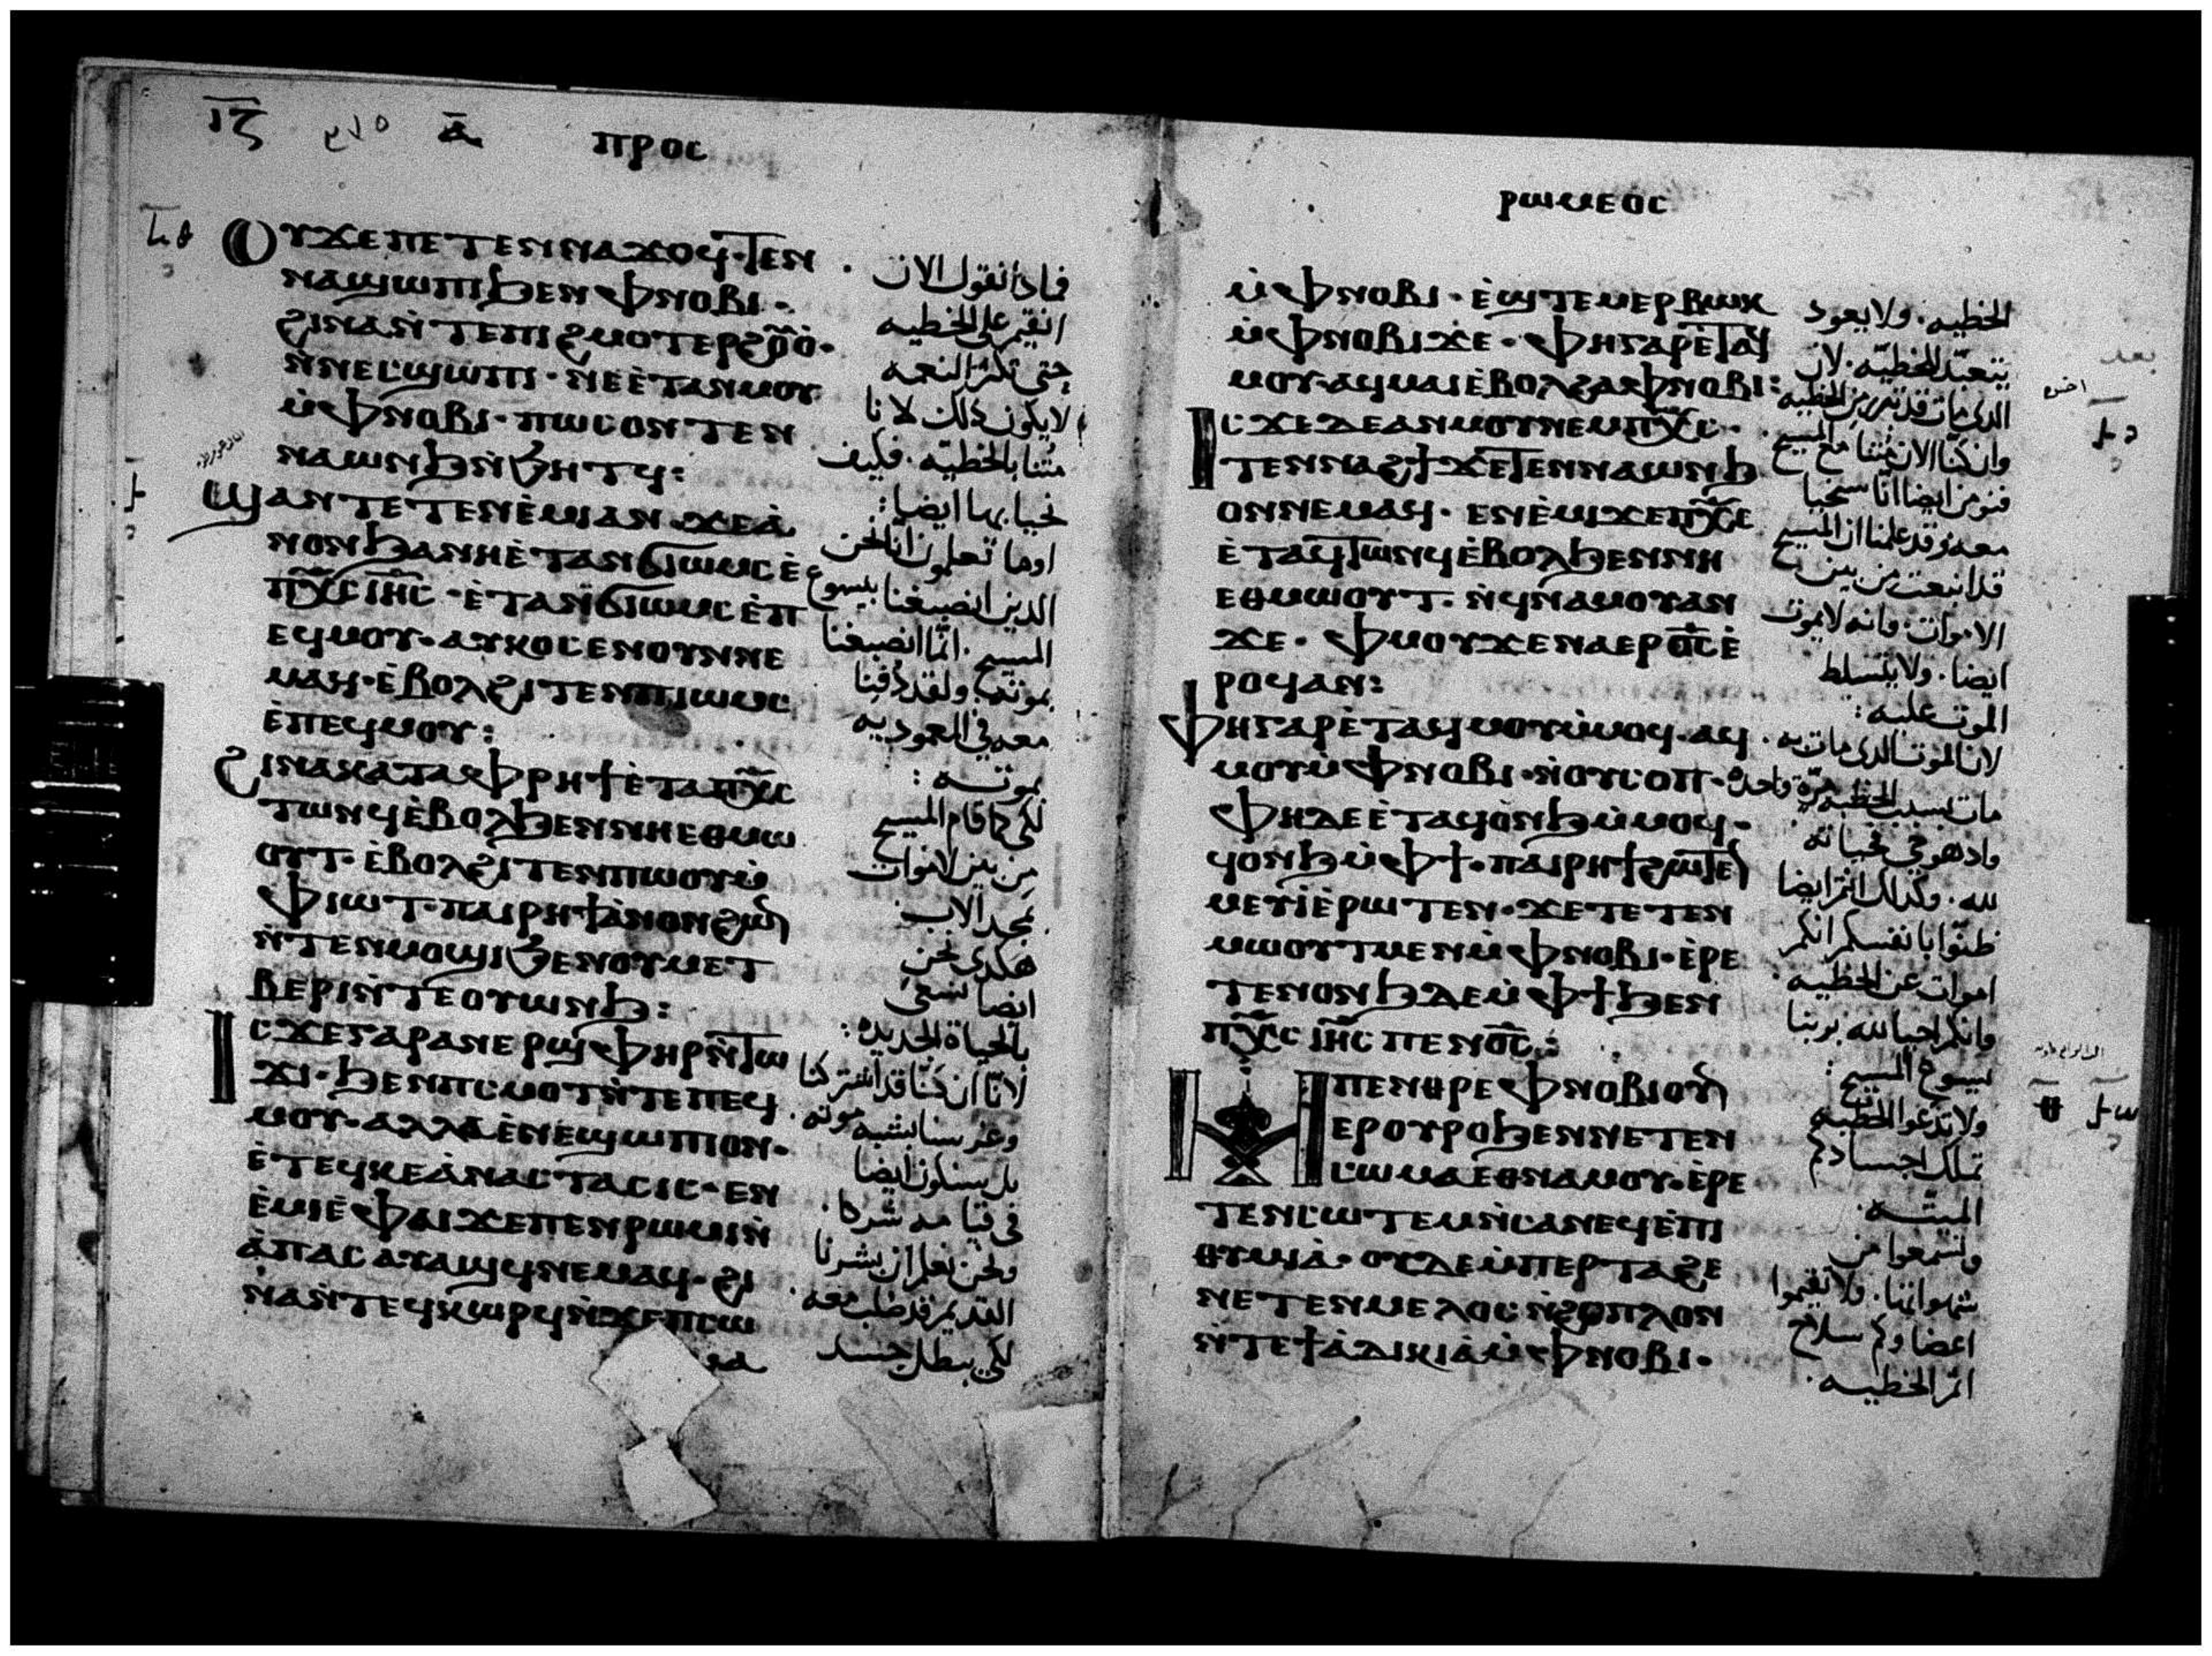 ⲓⲍ ⲁ̄ ⲡⲣⲟⲥ
ⲟⲩϫⲉⲡⲉⲧⲉⲛⲛⲁϫⲟϥ·ⲧⲉⲛ
ⲛⲁϣⲱⲡⲓϧⲉⲛⲫⲛⲟⲃⲓ·
ϩⲓⲛⲁⲛ̀ⲧⲉⲡⲓϩⲙⲟⲧⲉⲣϩⲟⲩⲟ̀·
ⲛ̀ⲛⲉⲥϣⲱⲡⲓ·ⲛⲏⲉ̀ⲧⲁⲛⲙⲟⲩ
ⲙ̀ⲫⲛⲟⲃⲓ·ⲡⲱⲥⲟⲛⲧⲉⲛ
ⲛⲁⲱⲛϧⲛ̀ϧⲏⲧϥ:
ϣⲁⲛⲧⲉⲧⲉⲛⲉ̀ⲙⲓⲁⲛ·ϫⲉⲁ̀
ⲛⲟⲛϧⲁⲛⲏⲉ̀ⲧⲁⲛϭⲓⲱⲙⲥⲉ̀
ⲡⲭ̅ⲥ̅ ⲓⲏ̅ⲥ̅·ⲉ̀ⲧⲁⲛϭⲓⲱⲙⲥⲉ̀ⲡ
ⲉϥⲙⲟⲩ·ⲁⲩⲕⲟⲥⲉⲛⲟⲩⲛⲛⲉ
ⲙⲁϥ·ⲉ̀ⲃⲟⲗϩⲓⲧⲉⲛⲡⲓⲱⲙⲥ
ⲉ̀ⲡⲉϥⲙⲟⲩ:
ϩⲓⲛⲁⲕⲁⲧⲁⲫⲣⲏϯⲉ̀ⲧⲁⲡⲭ̅ⲥ̅
ⲧⲱⲛϥⲉ̀ⲃⲟⲗϧⲉⲛⲛⲏⲉⲑⲙⲱ
ⲟⲩⲧ·ⲉ̀ⲃⲟⲗϩⲓⲧⲉⲛⲡⲱⲟⲩⲙ̀
ⲫⲓⲱⲧ·ⲡⲁⲓⲣⲏϯⲁ̀ⲛⲟⲛϩⲱⲛ
ⲛ̀ⲧⲉⲛⲙⲟϣⲓϧⲉⲛⲟⲩⲙⲉⲧ
ⲃⲉⲣⲓⲛ̀ⲧⲉⲟⲩⲱⲛϧ:
ⲓⲥϫⲉⲅⲁⲣⲁⲛⲉⲣϣⲫⲏⲣⲛ̀ⲧⲱ
ϫⲓ·ϧⲉⲛⲡⲥⲙⲟⲧⲛ̀ⲧⲉⲡⲉϥ
ⲙⲟⲩ·ⲁⲗⲗⲁⲉ̀ⲛⲉϣⲱⲡⲓⲟⲛ·
ⲉ̀ⲧⲉϥⲕⲉⲁ̀ⲛⲁⲥⲧⲁⲥⲓⲥ·ⲉⲛ
ⲉ̀ⲙⲓⲉ̀ⲫⲁⲓϫⲉⲡⲉⲛⲣⲱⲙⲓⲛ̀
ⲁ̀ⲡⲁⲥⲁⲩⲁϣϥⲛⲉⲙⲁϥ·ϩⲓ
ⲛⲁⲛ̀ⲧⲉϥⲕⲱⲣϥⲛ̀ϫⲉⲡⲥⲱ
ⲙⲁ
فماذا نقول الان
انقيم على الخطيه
حتى تكثر النعمه
لا يكون ذلك لانا
متنا بالخطيّه. فكيف
نحيا بها ايضا:
اوما تعلمون انا نحن
الذين انصبغنا بيسوع
المسيح. انما انصبغنا
بموته. ولقد دفنا
معه في المعموديه
بموته:
لكي كما قام المسيح
من بين الاموات
بمجد الاب.
هكذى نحن
ايضا نسعى
بالحياة الجديده:
لانّا ان كنّا قد اشتركنا
وغرسنا بشبه موته.
بل سنكون ايضا
في قيامته شركا.
ونحن نعلم ان بشرنا
القديم قد صلب معه.
لكي يبطل جسد
ⲣⲱⲙⲉⲟⲥ
ⲙ̀ⲫⲛⲟⲃⲓ·ⲉ̀ϣⲧⲉⲙⲉⲣⲃⲱⲕ
ⲙ̀ⲫⲛⲟⲃⲓϫⲉ·ⲫⲏⲅⲁⲣⲉ̀ⲧⲁϥ
ⲙⲟⲩ·ⲁϥⲙⲁⲓⲉ̀ⲃⲟⲗϩⲁⲫⲛⲟⲃⲓ:
ⲓⲥϫⲉⲇⲉⲁⲛⲙⲟⲩⲛⲉⲙⲡⲭ̅ⲥ̅·
ⲧⲉⲛⲛⲁϩϯϫⲉⲧⲉⲛⲛⲁⲱⲛϧ
ⲟⲛⲛⲉⲙⲁϥ·ⲉⲛⲉ̀ⲙⲓϫⲉⲡⲭ̅ⲥ̅
ⲉ̀ⲧⲁϥⲧⲱⲛϥⲉ̀ⲃⲟⲗϧⲉⲛⲛⲏ
ⲉⲑⲙⲱⲟⲩⲧ·ⲛ̀ϥⲛⲁⲙⲟⲩⲁⲛ
ϫⲉ·ⲫⲙⲟⲩϫⲉⲛⲁⲉⲣⲟ̅ⲥ̅ⲉ̀
ⲣⲟϥⲁⲛ:
ⲫⲏⲅⲁⲣⲉ̀ⲧⲁϥⲙⲟⲩⲙ̀ⲙⲟϥ·ⲁϥ
ⲙⲟⲩⲙ̀ⲫⲛⲟⲃⲓ·ⲛ̀ⲟⲩⲥⲟⲡ·
ⲫⲏⲇⲉⲉ̀ⲧⲁϥⲟ̀ⲛϧⲙ̀ⲙⲟϥ·
ϥⲟⲛϧⲙ̀ⲫϯ·ⲡⲁⲓⲣⲏϯϩⲱⲧⲉⲛ
ⲙⲉⲩⲓⲉ̀ⲣⲱⲧⲉⲛ·ϫⲉⲧⲉⲧⲉⲛ
ⲙⲱⲟⲩⲧⲙⲉⲛⲙ̀ⲫⲛⲟⲃⲓ·ⲉ̀ⲣⲉ
ⲧⲉⲛⲟⲛϧⲇⲉⲙ̀ⲫϯϧⲉⲛ
ⲡⲭ̅ⲥ̅ ⲓⲏ̅ⲥ̅ ⲡⲉⲛⲟ̅ⲥ̅:
ⲙⲡⲉⲛⲑⲣⲉⲫⲛⲟⲃⲓⲟⲩⲛ
ⲉⲣⲟⲩⲣⲟϧⲉⲛⲛⲉⲧⲉⲛ
ⲥⲱⲙⲁⲉⲑⲛⲁⲙⲟⲩ·ⲉ̀ⲣⲉ
ⲧⲉⲛⲥⲱⲧⲉⲙⲛ̀ⲥⲁⲛⲉϥⲉ̀ⲡⲓ
ⲑⲩⲙⲓⲁ̀·ⲟⲩⲇⲉⲙ̀ⲡⲉⲣⲧⲁϩⲉ
ⲛⲉⲧⲉⲛⲙⲉⲗⲟⲥⲛ̀ϩⲟⲡⲗⲟⲛ
ⲛ̀ⲧⲉϯⲁ̀ⲇⲓⲕⲓⲁ̀ⲙ̀ⲫⲛⲟⲃⲓ·
الخطيه. ولا يعود
يتعبّد للخطيّه. لان
الذى مات قد تبرر من الخطيه
وان كنّا الان متنا مع المسيح.
فنومن ايضا انا سنحيا
معه وقد علمنا ان المسيح
قد انبعث من بين
الاموات. وانه لا يموت
ايضا. ولا يتسلط
الموت عليه:
لان الموت الذى مات به.
مات بسبب الخطيه مرّة واحده
واذ هو حي فحياته
لله. وكذلك انتم ايضا
ظنّوا بانفسكم انكم
اموات عن الخطيه.
وانكم احيا لله بربنا
يسوع المسيح:
ولا تدعوا الخطيه
تملك اجسادكم
الميته.
وتسمعوا من
شهواتها. ولا تقيموا
اعضاوكم سلاح
اثم الخطيه.